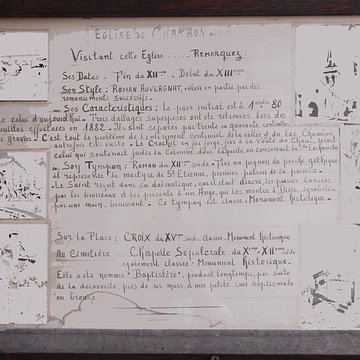 EGLISE DE CHAMBON
Visitant cette Eglise ..... REMARQUEZ:
Ses Dates: Fin du XIIème - Début du XIIIème
Son Style: ROMAN AUVERGNAT, enlevé en partie par des
remaniements successifs.
Ses Caractéristiques: le pavé initial est à 1 mètre 80
de celui d'aujourd'hui. Trois dallages superposés ont été retrouvés lors des
fouilles effectuées en 1882. Ils sont séparés par trente ou quarante centimètres
de gravier. C'est tout le problème de l'écoulement continuel de la vallée et du lac Chambon
autrefois très vaste. Le Crochet en fer forgé, fixé à la Voute du Chœur,
celui qui soutenait jadis la Colombe, dans laquelle, on conservait la Ste Eucharistie
Son Tympan: ROMAN DU XIIème siècle. Fixé au pignon du porche gothique
il représente le martyre de St Etienne, premier patron de la paroisse.
Le Saint reçoit dans sa dalmatique, car il était diacre, les pierres lancées
par les bourreaux et en présence d'un Ange, qui les montre à Dieu symbolisé
par une main, bénissant. Ce tympan est classé: Monument historique.
Sur la Place: CROIX du XVème siècle classée. Monument historique
Au Cimetière Chapelle Sépulcrale du Xème-XIIème siècle
également classée Monument historique.
Elle a été nommée "Baptistère" pendant longtemps, par suite
de la découverte, près de ses murs, d'une petite cuve baptismale
en bronze.